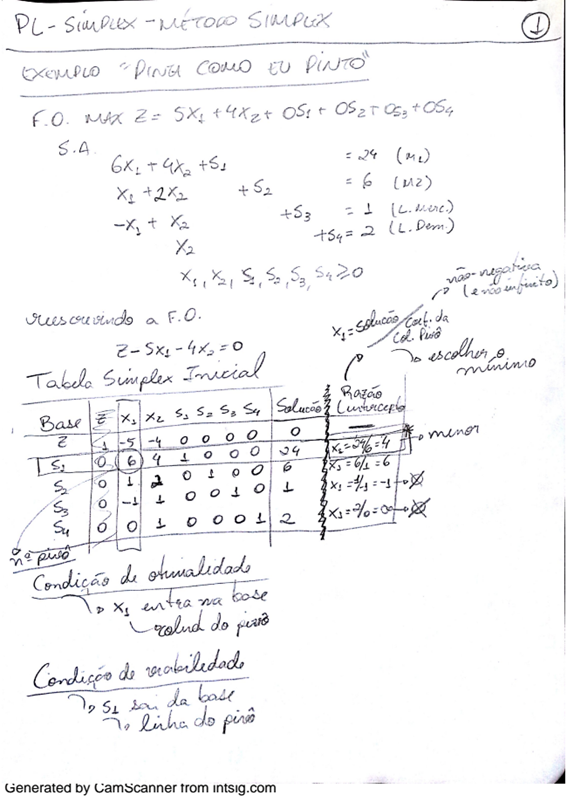 PL - SIMPLEX - MÉTODO SIMPLEX
1
EXEMPLO "PINTA COMO EU PINTO"
F.O. MAX Z = 5X1 + 4X2 + 0S1 + 0S2 + 0S3 + 0S4
S.A.
6X1 + 4X2 + S1 = 24 (M1)
X1 + 2X2 + S2 = 6 (M2)
-X1 + X2 + S3 = 1 (L. Merc.)
X2 + S4 = 2 (L. Dem.)
X1, X2, S1, S2, S3, S4 ≥ 0
não-negativa
(e não infinito)
reescrevendo a F.O.
X1 = Solução / Coef. da Col. Pivô
Z - 5X1 - 4X2 = 0
escolher o mínimo
Tabela Simplex Inicial
Base Z X1 X2 S1 S2 S3 S4 Solução Razão (intercepto)
Z 1 -5 -4 0 0 0 0 0 —
S1 0 6 4 1 0 0 0 24 X1 = 24/6 = 4 menor
S2 0 1 2 0 1 0 0 6 X1 = 6/1 = 6
S3 0 -1 1 0 0 1 0 1 X1 = 1/-1 = -1
S4 0 0 1 0 0 0 1 2 X1 = 2/0 = ∞
nº pivô
Condição de otimalidade
X1 entra na base
coluna do pivô
Condição de viabilidade
S1 sai da base
linha do pivô
Generated by CamScanner from intsig.com